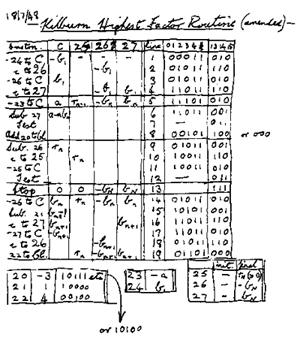 18/7/48
Kilburn Highest Factor Routine (amended)
C 25 26 27 line 01234 131415
-26 to C -b₁ - - - 1 00011 010
c to 26 -b₁ 2 01011 110
-26 to C b₁ 3 01011 010
c to 27 -b₁ b₁ 4 11011 110
-23 to C a 5 11101 010
Sub. 27 6 11011 001
Test 7 011
Add 20 to 8 00101 100 or 000
Sub. 26 9 01011 001
c to 25 10 10011 110
-25 to C 11 10011 010
Test 12 011
Stop 0 0 13 111
-26 to C 14 01011 010
Sub. 21 15 10101 001
c to 27 16 11011 110
-27 to C 17 11011 010
c to 26 18 01011 110
22 to 19 01101 000
20 -3 10111 etc
21 1 10000
22 4 00100
or 10100
23 -a
24 b₁
init. final
25 -
26 -
27 -